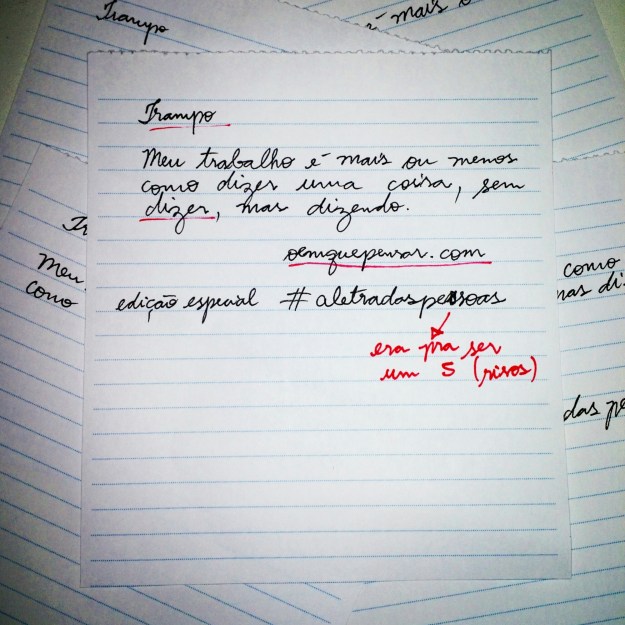 Trampo
mais
Trampo
Meu trabalho é mais ou menos
como dizer uma coisa, sem
dizer, mas dizendo.
oemquepensar.com
edição especial #aletradaspessoas
era pra ser
um s (risos)
Meu
como
como
das pe